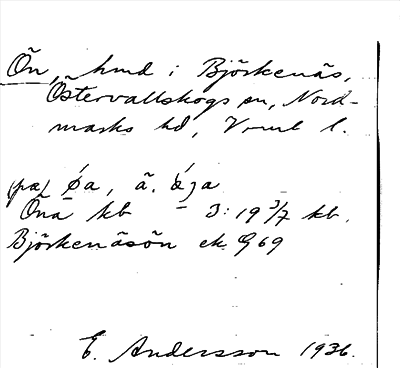 Ön, hmd i Björkenäs,
Östervallskogs sn, Nord-
marks hd, Vrml l.
(pa) øa, ä.
Öna kb - 3:19 3/7 kb.
Björkenäsön ek G69
E. Andersson 1936.